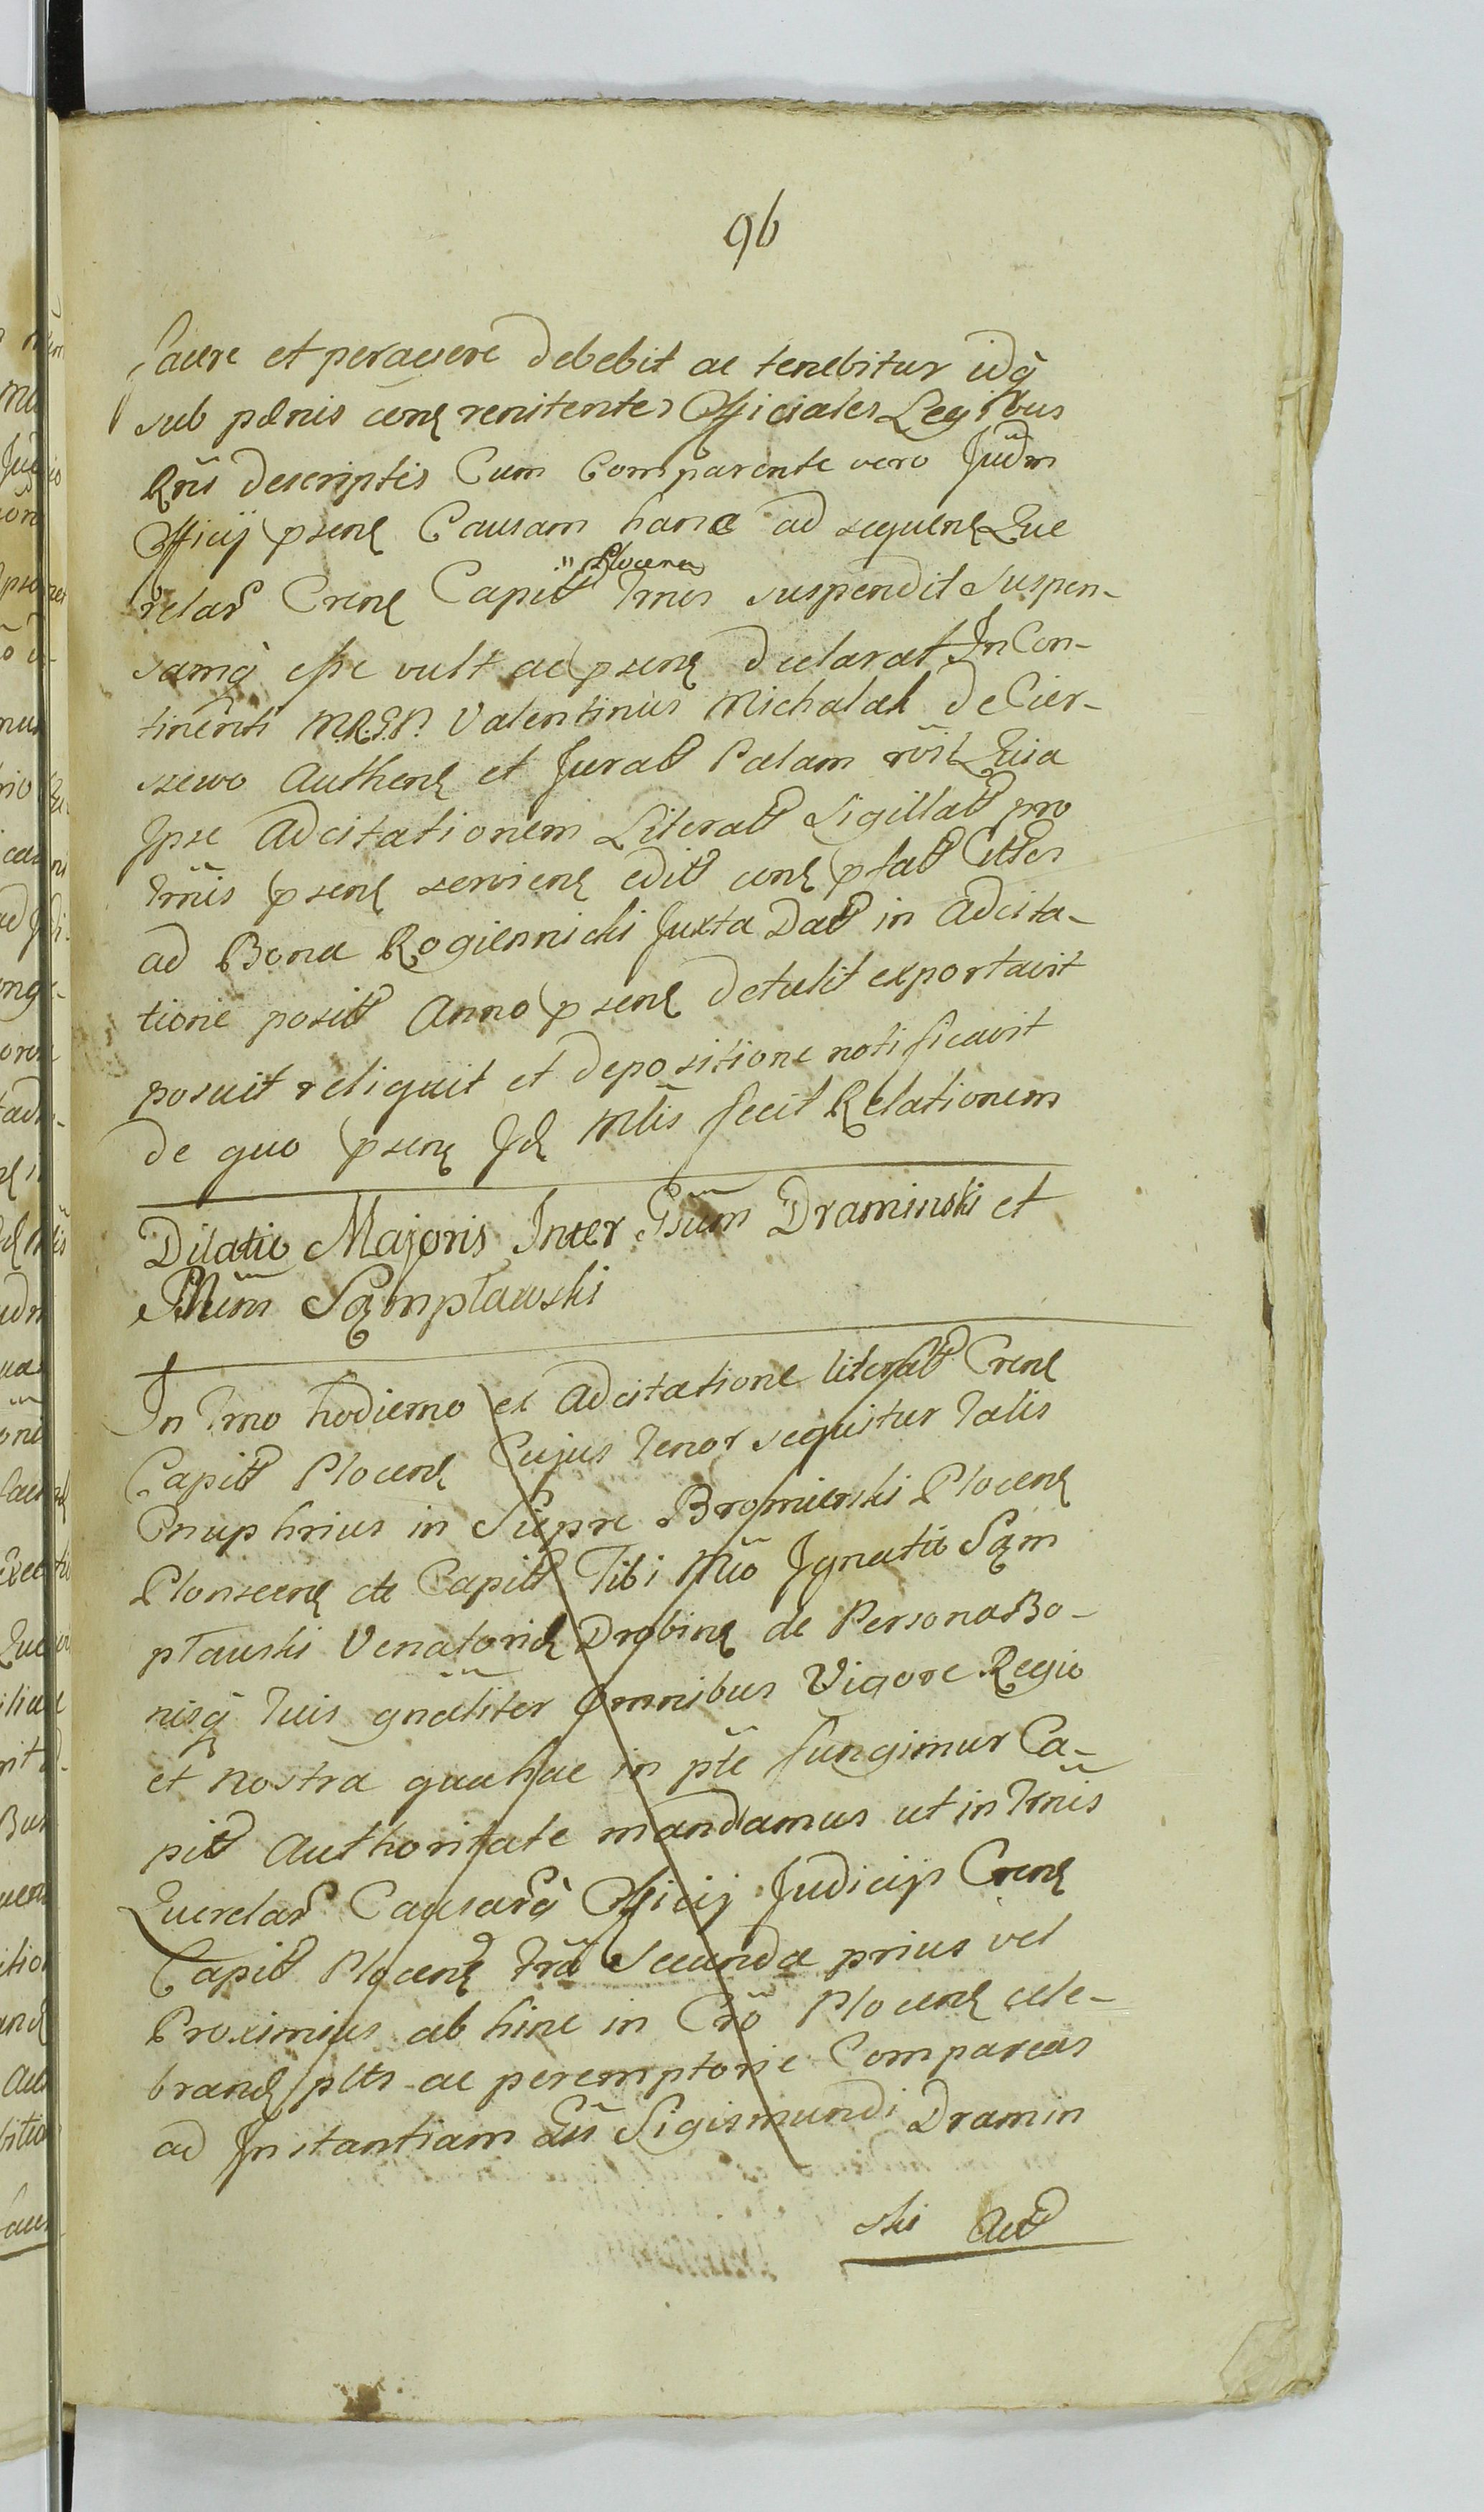 96
facere et peragere debebit ac tenebitur idq̃
sub pœnis conꝭ renitentes Officiales Legibus
Rñi descriptis Cum Comparente vero Jud̃m
Officij pꝛsenꝭ Causam hanc ad sequenꝭ Que
relaꝝ Crenꝭ Capit Plocenꝭ Trnos suspendit suspen-
samq̃ esse vult ac pꝛsenꝭ declarat In Con-
tinenti M.R.G.P. Valentinus Michalak de Cier-
szewo Authenꝭ et Jurat Palam rõit Quia
Ipse Adcitationem Literat Sigillat pro
Trñis pꝛsenꝭ servienꝭ edit conꝭ pꝛtat
ad Bona Rogiennicki Juxta Dat in adcita-
tione posit Anno pꝛsenꝭ detulit exportavit
posuit reliquit et depositione notificavit
de quo pꝛsenꝭ Jdꝭ Mlĩs fecit Relationem
Dilatio Majoris Inter Gsũm Draminski et
Mũm Sąmpławski
In Trno hodierno ex Adcitatione literat Crenꝭ
Capit Plocenꝭ Cujus Tenor sequitur Talis
Onuphrius in Siepre Bromierski Plocenꝭ
Plonscenꝭ etc Capit Tibi Mf̃o Ignatio Sąm
pławski Venatoridꝭ Drobinꝭ de Persona Bo-
nisq̃ Tuis gnãliter omnibus Vigore Regio
et nostra qua hac in pt̃e fungimur Ca-
pit Authoritate mandamus ut in Trñis
Querelaꝝ Causaꝝq̃ Officij Judicijs Crenꝭ
Capit Plocenꝭ frã Secunda prius vel
Proximius ab hinc in Crõ Plocenꝭ cele-
brandꝭ pltr ac peremptorie Compareas
ad Instantiam Gsĩ Sigismundi Dramin
ski Act